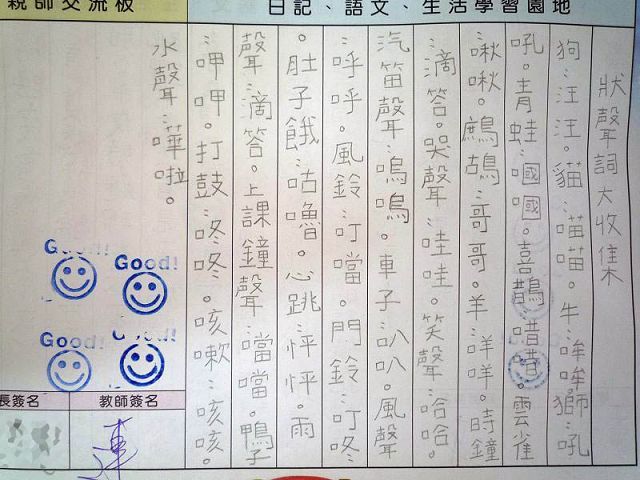 親師交流板
日記、語文、生活學習園地
狀聲詞大收集
狗:汪汪。貓:喵喵。牛:哞哞獅:吼
吼。青蛙:嘓嘓。喜鵲:唶唶。雲雀
:啾啾。鷓鴣:哥哥。羊:咩咩。時鐘
:滴答。哭聲:哇哇。笑聲:哈哈。
汽笛聲:嗚嗚。車子:叭叭。風聲
:呼呼。風鈴:叮噹。門鈴:叮咚
。肚子餓:咕嚕。心跳:怦怦。雨
聲:滴答。上課鐘聲:噹噹。鴨子
:呷呷。打鼓:咚咚。咳嗽:咳咳。
水聲:嘩啦。
Good!
Good!
Good!
Good!
長簽名
教師簽名